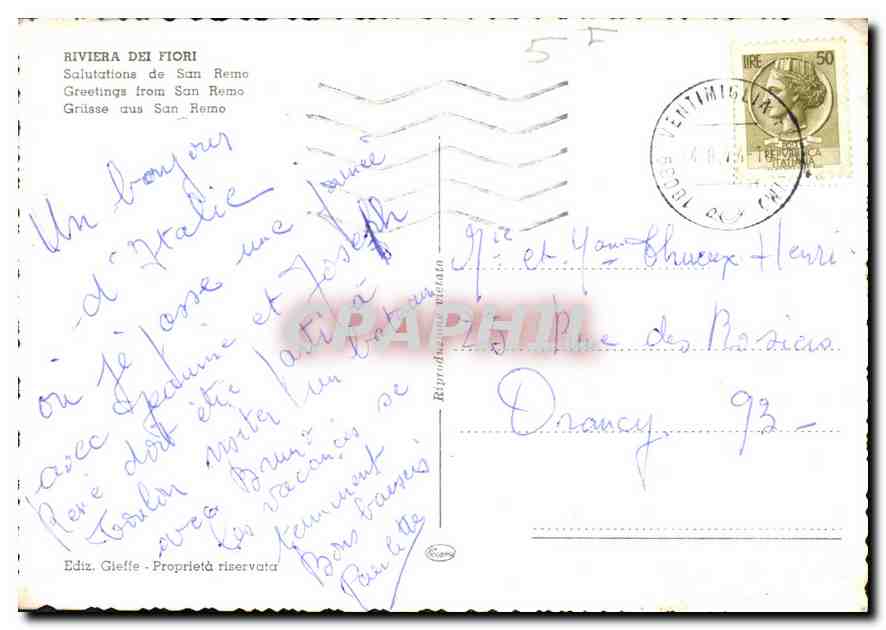 RIVIERA DEI FIORI
Salutations de San Remo
Greetings from San Remo
Grüsse aus San Remo
Un bonjour
d'Italie
où je passe une journée
avec Jeanine et Joseph
René doit être parti à
Toulon visiter un bateau
avec Bruno
Les vacances se
terminent
Bons baisers
Paulette
Ediz. Gieffe - Proprietà riservata
Riproduzione vietata
5 I
LIRE 50
REPUBBLICA
ITALIANA
18039 VENTIMIGLIA
CPAPHIL
et Henri
25 Rue des Rosiers
Drancy 93 -